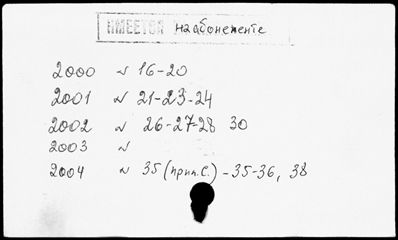 ИМЕЕТСЯ на абонементе
2000 № 16-20
2001 № 21-23-24
2002 № 26-27-28 30
2003 №
2004 № 35 (прил.С.) - 35-36, 38